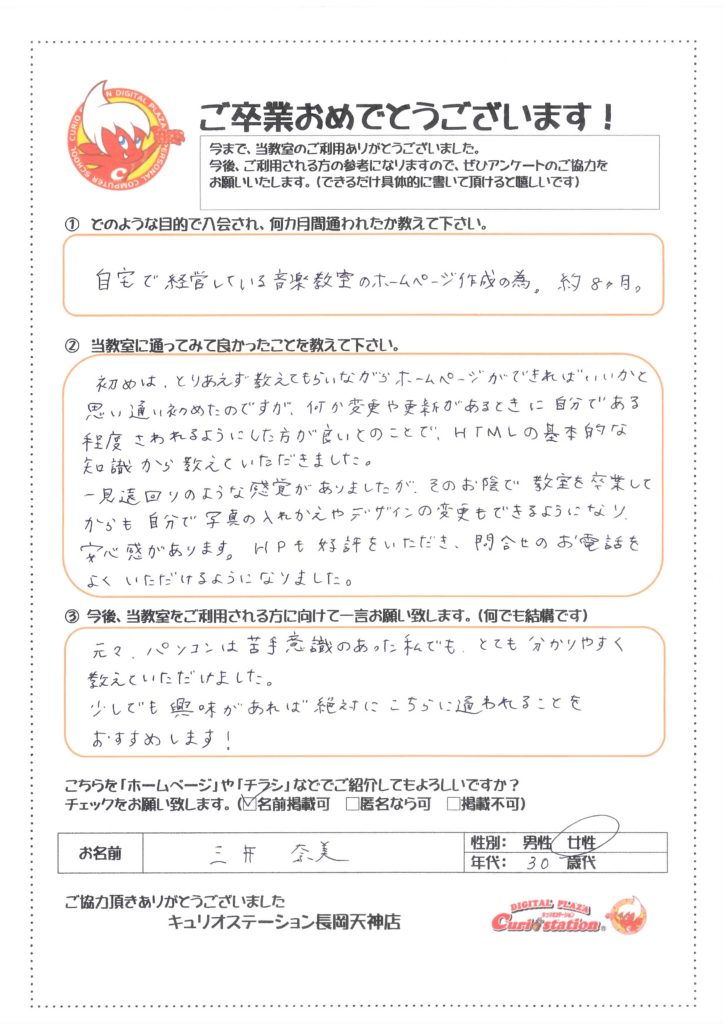 CURIO STATION DIGITAL PLAZA PERSONAL COMPUTER SCHOOL
ご卒業おめでとうございます！
今まで、当教室のご利用ありがとうございました。
今後、ご利用される方の参考になりますので、ぜひアンケートのご協力を
お願いいたします。（できるだけ具体的に書いて頂けると嬉しいです）
① どのような目的で入会され、何カ月間通われたか教えて下さい。
自宅で経営している音楽教室のホームページ作成の為。約8ヶ月。
② 当教室に通ってみて良かったことを教えて下さい。
初めは、とりあえず教えてもらいながらホームページができればいいかと
思い通い初めたのですが、何か変更や更新があるときに自分である
程度さわれるようにした方が良いとのことで、HTMLの基本的な
知識から教えていただきました。
一見遠回りのような感覚がありましたが、そのお陰で教室を卒業して
からも自分で写真の入れかえやデザインの変更もできるようになり、
安心感があります。HPも好評をいただき、問合せのお電話を
よくいただけるようになりました。
③ 今後、当教室をご利用される方に向けて一言お願い致します。（何でも結構です）
元々、パソコンは苦手意識のあった私でも、とても分かりやすく
教えていただけました。
少しでも興味があれば絶対にこちらに通われることを
おすすめします！
こちらを「ホームページ」や「チラシ」などでご紹介してもよろしいですか？
チェックをお願い致します。（☑名前掲載可 □匿名なら可 □掲載不可）
お名前 三井 奈美 性別： 男性 女性
年代： 30 歳代
ご協力頂きありがとうございました
キュリオステーション長岡天神店
DIGITAL PLAZA
キュリオステーション
Curio station®